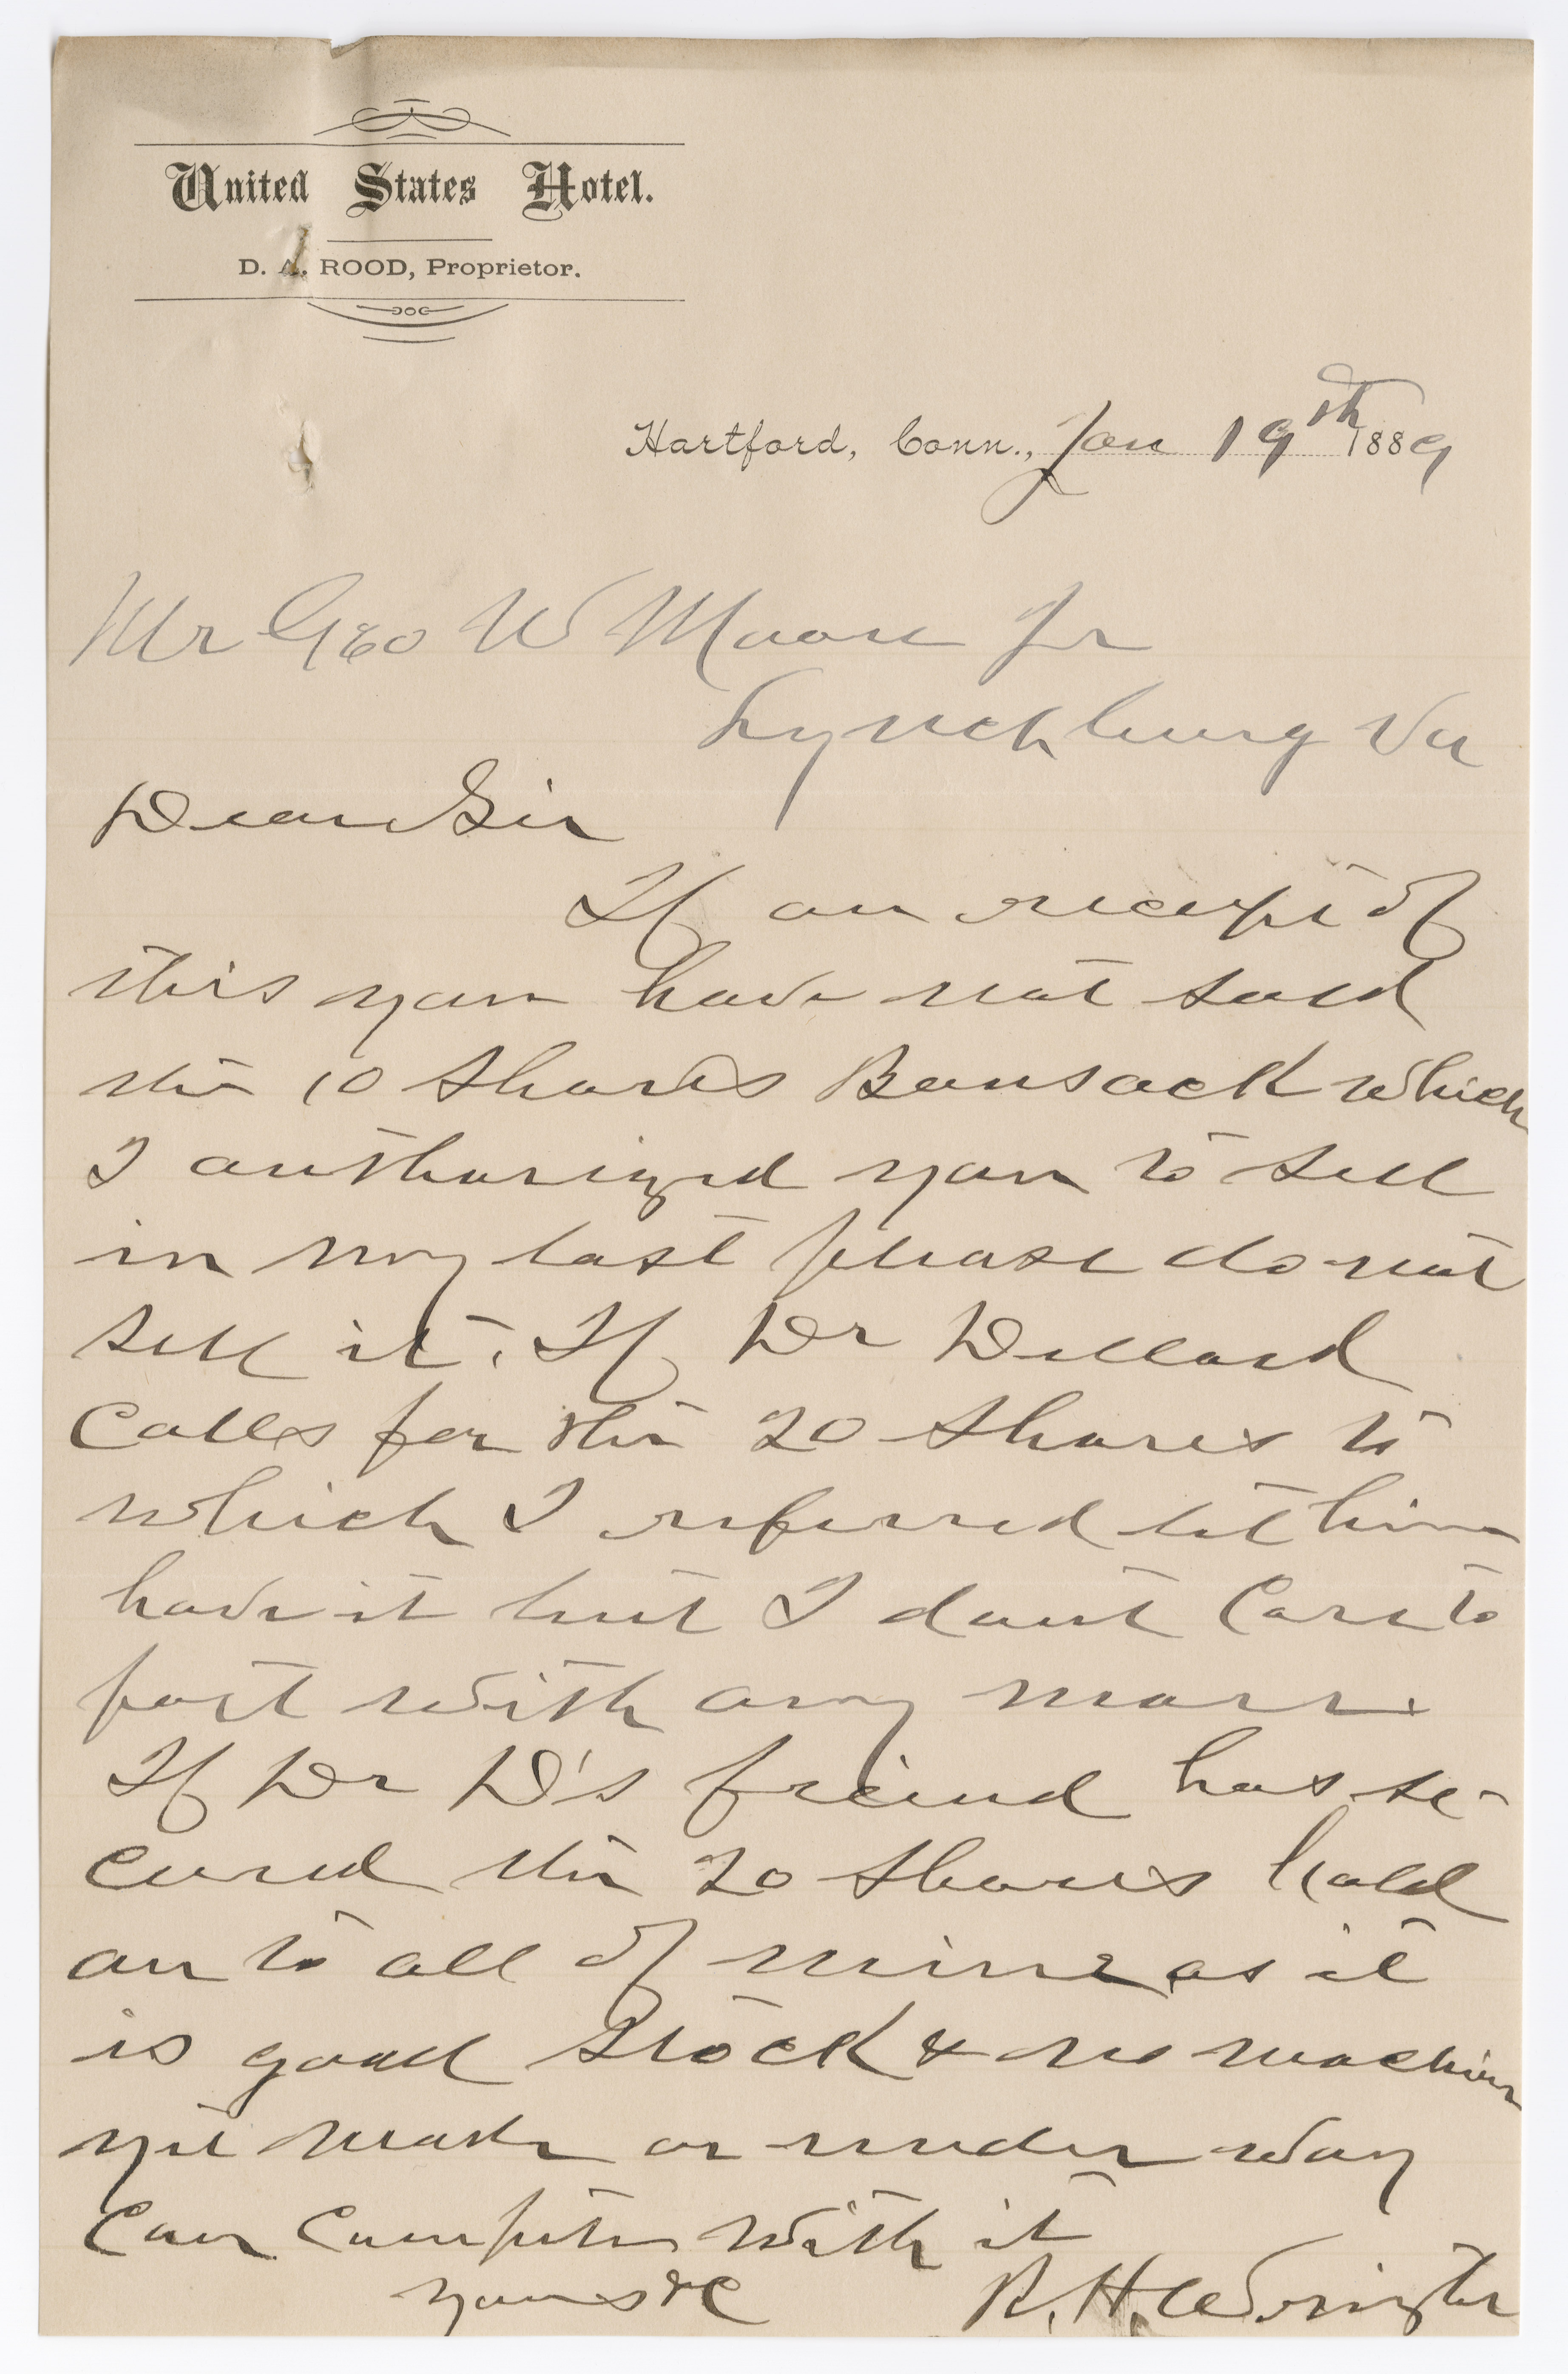 United States Hotel.
D. A. ROOD, Proprietor.
Hartford, Conn., Jan 19th 1889
Mr Geo W Moore Jr
Lynchburg Va
Dear Sir
If on receipt of
this you have not sold
the 10 shares Bonsack which
I authorized you to sell
in my last please do not
sell it. If Dr Dillard
calls for the 20 shares to
which I referred let him
have it but I dont care to
part with any more.
If Dr D's freind has se-
cured the 20 shares hold
on to all of mine as it
is good stock & no machine
yet made or under way
can compete with it
yours &c R. H. Wright